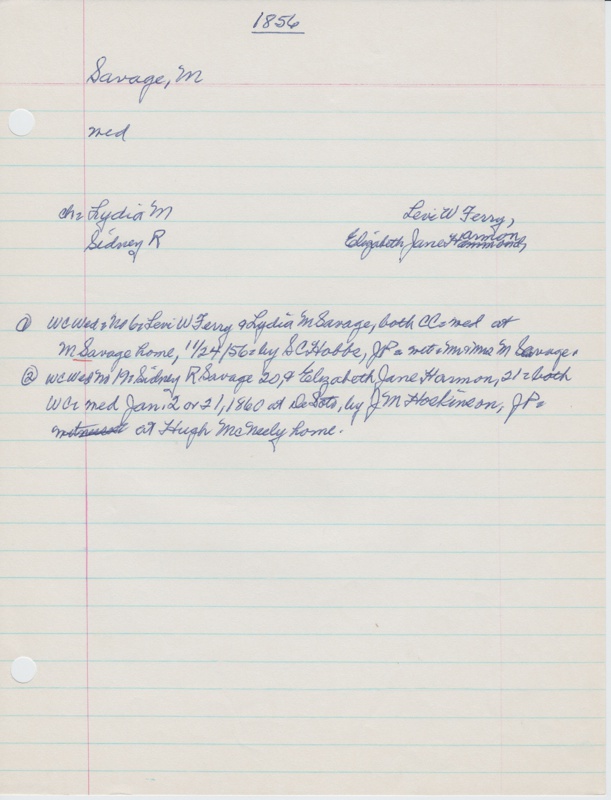 1856
Savage, M
med
ch = Lydia M Levi W Ferry,
Sidney R Elizabeth Jane Harmon
① WC Wed = No 6 = Levi W Ferry & Lydia M Savage, both CC = med at
M Savage home, 11/24/56 = by S C Hobbs, JP = wit = Mr & Mrs M Savage.
② WC Wed No 191 = Sidney R Savage 20, & Elizabeth Jane Harmon, 21 = both
WC = med Jan. 2 or 21, 1860 at DeSoto, by J M Hoskinson, JP =
at Hugh McNeely home.